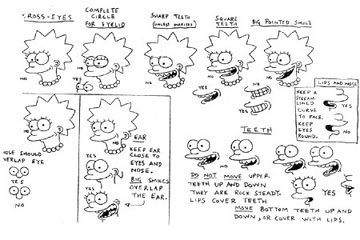 CROSS-EYES
COMPLETE
CIRCLE
FOR EYELID
SHARP TEETH
SQUARE
TEETH
BIG POINTED SMILE
NO
NO
NO
NO
NO
YES
LIPS AND NOSE
KEEP A
STREAM-
LINED
CURVE
TO FACE.
KEEP
EYES
ROUND.
NO
YES
NOSE SHOULD
OVERLAP EYE
YES
NO
EAR
KEEP EAR
CLOSE TO
EYES AND
NOSE.
BIG SMILES
OVERLAP
THE EAR.
NO
YES
YES
TEETH
NO
YES
NO
DO NOT MOVE UPPER
TEETH UP AND DOWN
THEY ARE ROCK STEADY.
LIPS COVER TEETH
MOVE BOTTOM TEETH UP AND
DOWN, OR COVER WITH LIPS.